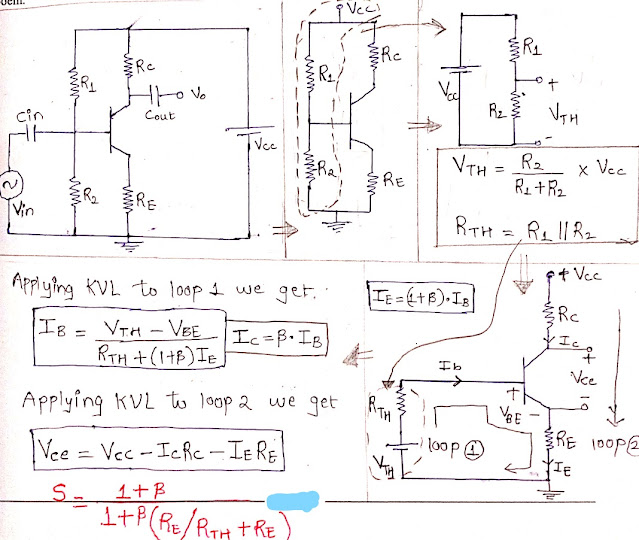 Vcc
R1
Rc
Cin
Cout
Vo
Vcc
R2
RE
Vin
R1
Rc
R2
RE
R1
+
Vcc
R2
VTH
-
VTH = R2 / R1+R2 x Vcc
RTH = R1 || R2
Applying KVL to loop 1 we get,
IB = VTH - VBE / RTH + (1+β) IE
Ic = β · IB
IE = (1+β) · IB
Applying KVL to loop 2 we get
Vce = Vcc - IcRc - IERE
S = 1+β / 1+β (RE/RTH + RE)
+ Vcc
Rc
Ic
+
Ib
Vce
+
VBE -
-
RTH
loop 1
RE
loop 2
VTH
IE